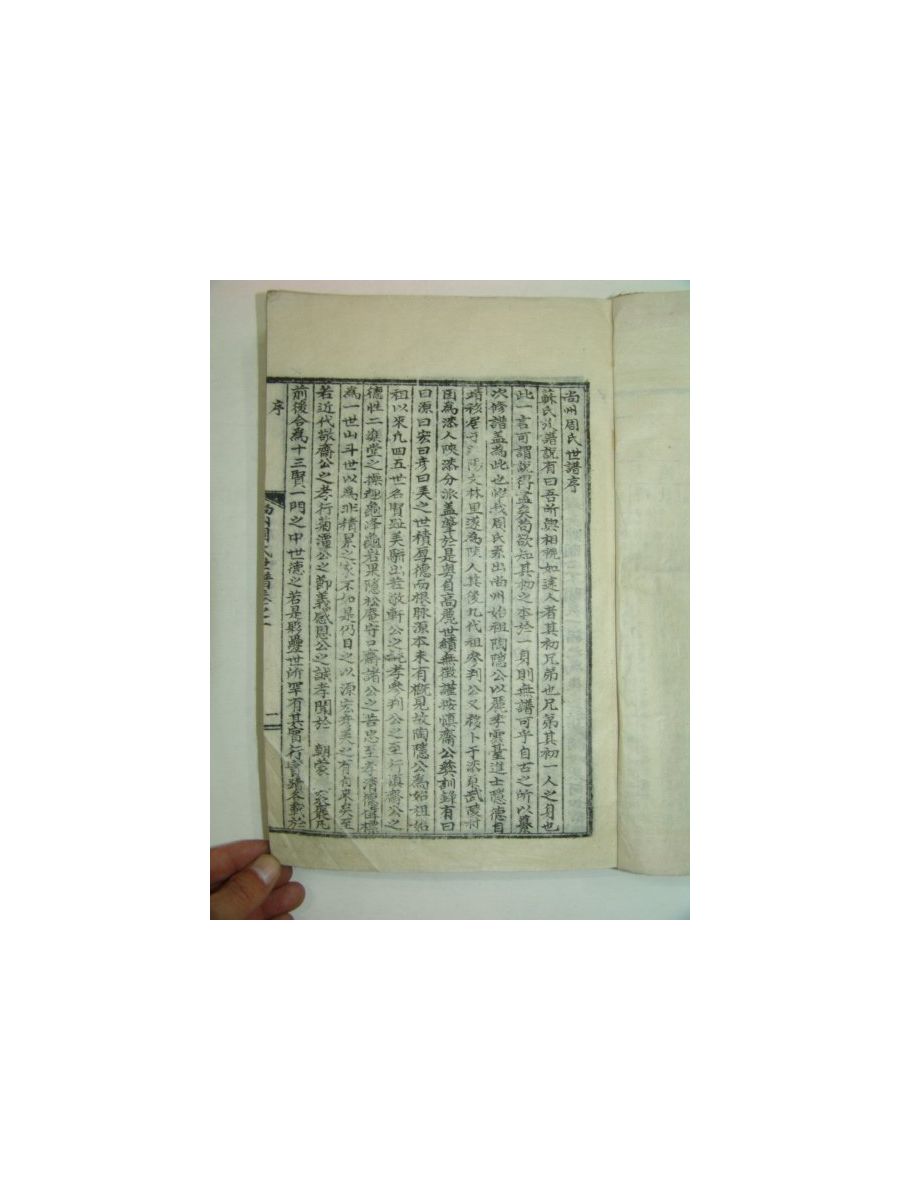 尙州周氏世譜序
蘇氏族譜說有曰吾所與相視如塗人者其初兄弟也兄弟其初一人之身也
此一言可謂說得盡矣苟欲知其初之本於一身則無譜可乎自古之所以纂
次修譜盖爲此也惟我周氏系出尙州始祖陶隱公以麗季雲臺進士隱德自
靖移居于 陽文林里遂爲陜人其後九代祖參判公又移卜于漆原武陵村
因爲漆人陜漆分派盖肇於是奧自高麗世績無徵謹按愼齋公奬訓錄有曰
曰源曰宏曰彦曰美之世積厚德而根脉源本未有槪見故陶隱公爲始祖始
祖以來九四五世名胄趾美騈出若敬軒公之純孝參判公之至行愼齋公之
德性二樂堂之操 龜峰龜岩果隱松庵守口齋諸公之苦忠至孝淸德
爲一世山斗世以爲非精累之 不如是仍目之以源宏彦美之有自來矣至
若近代敬齋公之孝行菊潭公之節義感恩公之誠孝聞於 朝蒙 褒凡
前後合爲十三賢一門之中世德之若是 疊世所罕有其實行實蹟 於
序
尙州周氏世譜卷之一
一